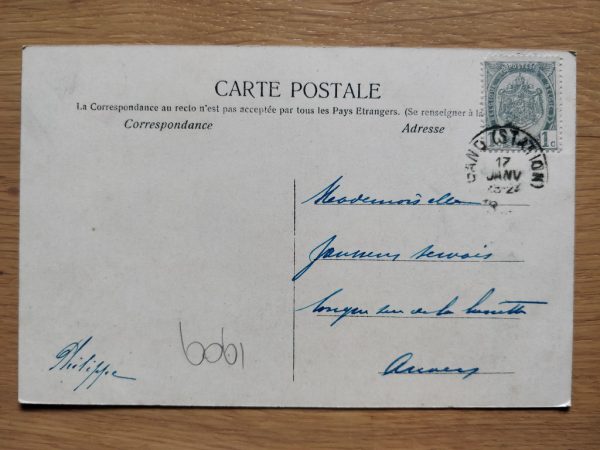 CARTE POSTALE
La Correspondance au recto n'est pas acceptée par tous les Pays Etrangers. (Se renseigner à la
Correspondance
Adresse
1c
GAND (STATION)
17
JANV
Mademoiselle
Janssens Servais
longue rue de la lunette
Anvers
Philippe
1909